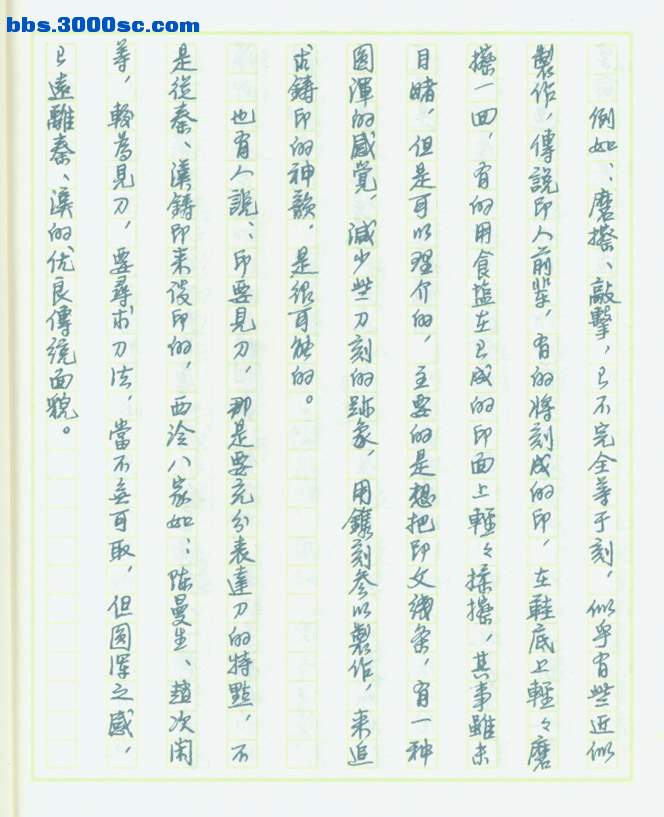 bbs.3000sc.com
例如：磨擦、敲擊，已不完全等于刻，似乎有些近似
製作，傳說印人前輩，有的將刻成的印，在鞋底上輕々磨
擦一回，有的用食塩在已成的印面上輕々揉擦，其事雖未
目睹，但是可以理介的，主要的是想把印文线条，有一种
圆渾的感觉，減少些刀刻的跡象，用鐫刻参以製作，来追
求鋳印的神韻，是很可能的。
也有人說：印要見刀，那是要充分表達刀的特點，不
是從秦、漢鋳印来役印的，西泠八家如：陈曼生、趙次闲
等，較為見刀，要尋求刀法，當不無可取，但圆渾之感，
已遠離秦、漢的优良傳统面貌。